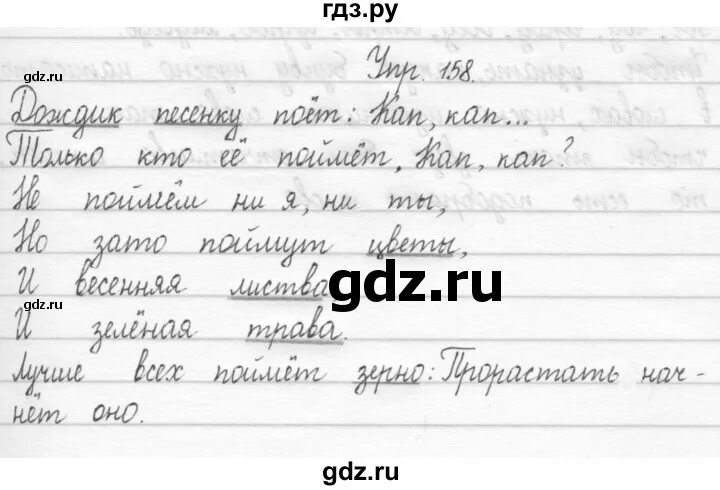 гдз.ру
gdz.ru
gdz.ru
Упр. 158.
Дождик песенку поёт: Кап, кап...
Только кто её поймёт, Кап, кап?
Не поймём ни я, ни ты,
Но зато поймут цветы,
И весенняя листва
gdz.ru
gdz.ru
И зелёная трава.
Лучше всех поймёт зерно: Прорастать нач-
нёт оно.
gdz.ru